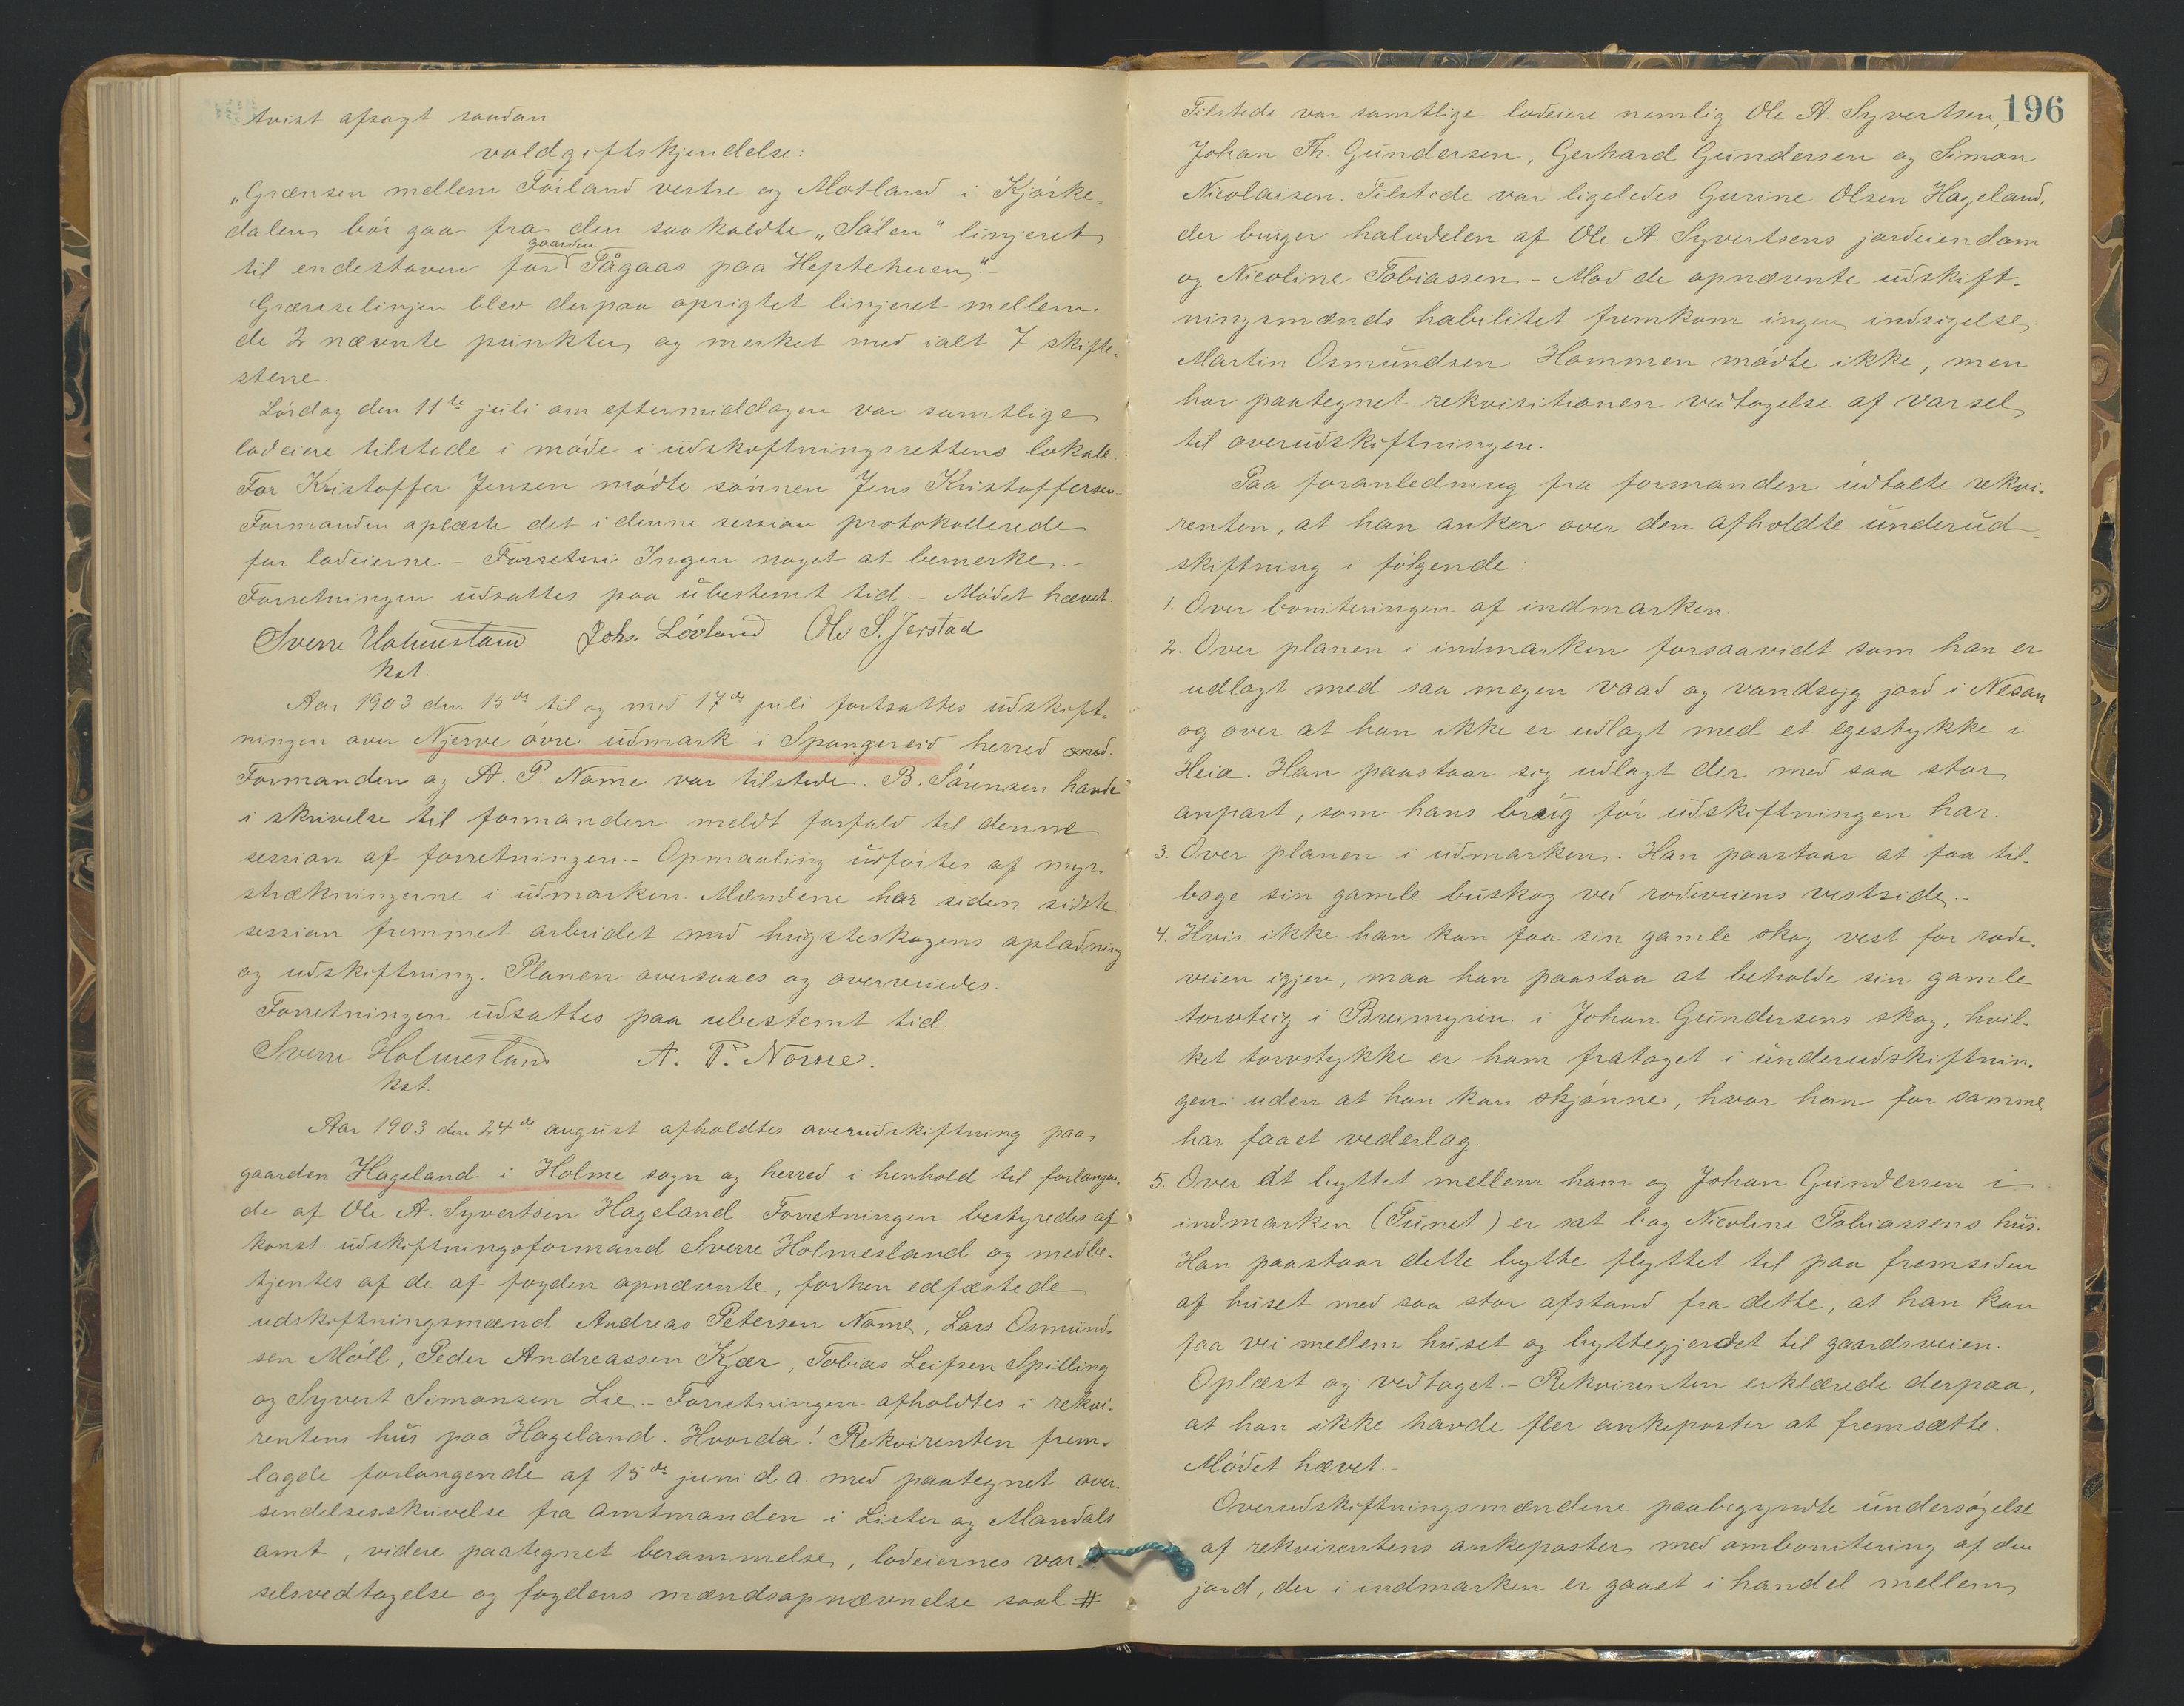 tvist afsagt saadan
voldgiftskjendelse:
„Grænsen mellem Föiland vestre og Motland i Kjörke-
dalen bör gaa fra den saakaldte „Sálen" linjeret
til endestaven for gaarden Tågaas paa Hepteheien."-
Grænselinjen blev derpaa oprigtet linjeret mellem
de 2 nævnte punkter og merket med ialt 7 skifte-
stene.
Lördag den 11te juli om eftermiddagen var samtlige
lodeiere tilstede i möde i udskiftningsrettens lokale.
For Kristoffer Jensen mödte sönnen Jens Kristoffersen.
Formanden oplæste det i denne session protokollerede
for lodeierne.- Ingen noget at bemerke.-
Forretningen udsattes paa ubestemt tid.- Mödet hævet.
Sverre Holmesland Johs. Lövland Ole S. Jerstad
kst.
Aar 1903 den 15de til og med 17de juli fortsattes udskift-
ningen over Njerve övre udmark i Spangereid herred
Formanden og A. P. Name var tilstede. B. Sörensen havde
i skrivelse til formanden meldt forfald til denne
session af forretningen.- Opmaaling udförtes af myr-
strækningerne i udmarken. Mændene har siden sidste
session fremmet arbeidet med hugsteskogens opladning
og udskiftning. Planen oversaaes og overveiedes.
Forretningen udsattes paa ubestemt tid.
Sverre Holmesland A. P. Nome.
kst.
Aar 1903 den 24de august afholdtes overudskiftning paa
gaarden Hageland i Holme sogn og herred i henhold til forlangen-
de af Ole A. Syvertsen Hageland. Forretningen bestyredes af
konst. udskiftningsformand Sverre Holmesland og medbe-
tjentes af de af fogden opnævnte, forhen edfæstede
udskiftningsmænd Andreas Petersen Name, Lars Osmund-
sen Möll, Peder Andreassen Kjær, Tobias Leifsen Spilling
og Syvert Simonsen Lie.- Forretningen afholdtes i rekvi-
rentens hus paa Hageland. Hvorda! Rekvirenten frem-
lagde forlangende af 15de juni d. a. med paategnet over-
sendelsesskrivelse fra amtmanden i Lister og Mandals
amt, videre paategnet berammelse, lodeiernes var-
selsvedtagelse og fogdens mændsopnævnelse saal #
196
Tilstede var samtlige lodeiere nemlig Ole A. Syvertsen,
Johan Th. Gundersen, Gerhard Gundersen og Simon
Nicolaisen. Tilstede var ligeledes Gurine Olsen Hageland,
der bruger halvdelen af Ole A. Syvertsens jordeiendom
og Nicoline Tobiassen.- Mod de opnævnte udskift-
ningsmænds habilitet fremkom ingen indsigelse.
Martin Osmundsen Hommen mödte ikke, men
har paategnet rekvisitionen vedtagelse af varsel
til overudskiftningen.
Paa foranledning fra formanden udtalte rekvi-
renten, at han anker over den afholdte underud-
skiftning i fölgende:
1. Over boniteringen af indmarken.
2. Over planen i indmarken forsaavidt som han er
udlagt med saa megen vaad og vandsyg jord i Nesan
og over at han ikke er udlagt med et egestykke i
Heia. Han paastaar sig udlagt der med saa stor
anpart, som hans brug för udskiftningen har.
3. Over planen i udmarken. Han paastaar at faa til-
bage sin gamle buskog ved rodeveiens vestside.-
4. Hvis ikke han kan faa sin gamle skog vest for rode-
veien igjen, maa han paastaa at beholde sin gamle
torvteig i Breimyren i Johan Gundersens skog, hvil-
ket torvstykke er ham frataget i underudskiftnin-
gen uden at han kan skjönne, hvor han for samme
har faaet vederlag.
5. Over at byttet mellem ham og Johan Gundersen i
indmarken (Tunet) er sat bag Nicoline Tobiassens hus.
Han paastaar dette bytte flyttet til paa fremsiden
af huset med saa stor afstand fra dette, at han kan
faa vei mellem huset og byttegjerdet til gaardsveien.
Oplæst og vedtaget.- Rekvirenten erklærede derpaa,
at han ikke havde fler ankeposter at fremsætte.
Mödet hævet.-
Overudskiftningsmændene paabegyndte undersögelse
af rekvirentens ankeposter med ombonitering af den
jord, der i indmarken er gaaet i handel mellem